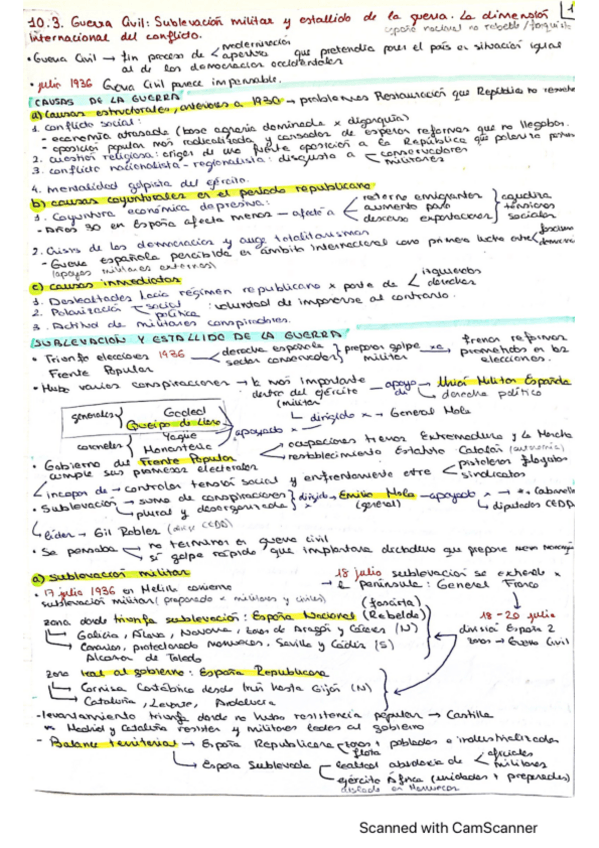 10.3. Guerra Civil: Sublevación militar y estallido de la guerra. La dimensión
Internacional del conflicto.
España nacional no rebelde/franquista
1
• Guerra Civil → fin proceso de < modernización
apertura que pretendía poner el país en situación igual
al de las democracias occidentales
• julio 1936 Guerra Civil parece impensable.
CAUSAS DE LA GUERRA
a) causas estructurales, anteriores a 1930 → problemas Restauración que República no resuelve
1. conflicto social:
- economía atrasada (base agraria dominada x oligarquía)
- oposición popular más radicalizada y cansados de esperar reformas que no llegaban.
2. cuestión religiosa: origen de una fuente oposición a la República que
3. conflicto nacionalista - regionalista: disgusto a < conservadores
militares
4. mentalidad golpista del ejército.
b) causas coyunturales en el periodo republicano
1. Coyuntura económica depresiva:
- Años 30 en España afecta menos - afectó a < retorno emigrantes
aumento paro
descenso exportaciones } agudiza
tensiones
sociales
2. Crisis de las democracias y auge totalitarismos
- Guerra española percibida en ámbito internacional como primera lucha entre < fascismo
(apoyos militares externos)
c) causas inmediatas
1. Deslealtades hacia régimen republicano x parte de < izquierdas
derechas
2. Polarización < social
política : voluntad de imponerse al contrario.
3. Actitud de militares conspiradores.
SUBLEVACIÓN Y ESTALLIDO DE LA GUERRA
• Triunfo elecciones 1936
Frente Popular < derecha española
sector conservador } preparar golpe
militar x a frenar reformas
prometidas en las
elecciones.
• Hubo varias conspiraciones → la más importante
dentro del ejército
(militar) - apoyo < Unión Militar Española
derecha política
↳ dirigida x → General Mola
generales { Goded
Queipo de Llano
coroneles { Yagüe
Monasterio
apoyado x
• Gobierno del Frente Popular
cumple sus promesas electorales
< ocupaciones tierras Extremadura y La Mancha
restablecimiento Estatuto Catalán (autonomía)
incapaz de → controlar tensión social y enfrentamiento entre < pistoleros falangistas
sindicatos
• Sublevación → suma de conspiraciones
plural y desorganizada } dirigido x Emilio Mola
(general) - apoyado x → Cabanellas
diputados CEDA
↳ líder → Gil Robles (CEDA)
• Se pensaba < no terminar en guerra civil
sí golpe rápido que implantara dictadura que prepare
a) Sublevación militar
• 17 julio 1936 en Melilla comienza
sublevación militar (preparada x militares y civiles)
18 julio sublevación se extiende x
península: General Franco
(fascista)
zona donde triunfa sublevación: España Nacional (Rebelde)
↳ Galicia, Álava, Navarra, zonas de Aragón y Cáceres (N)
↳ Canarias, protectorado marruecos, Sevilla y Cádiz (S)
Alcázar de Toledo
18 - 20 julio
división España 2
zonas → Guerra Civil
zona leal al gobierno: España Republicana
↳ Cornisa Cantábrica desde Irún hasta Gijón (N)
↳ Cataluña, Levante, Andalucía
- levantamiento triunfa donde no hubo resistencia popular → Castilla
en Madrid y Cataluña resisten y militares leales al gobierno
- Balance territorial → España Republicana < zonas + pobladas e industrializadas
flota
↳ España Sublevada < lealtad abundancia de < oficiales
militares
ejército África (unidades + preparadas)
Marruecos
Scanned with CamScanner